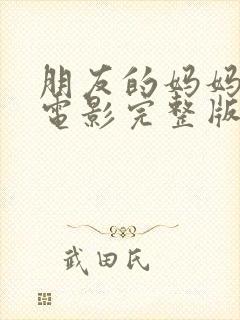 朋友的妈妈
电影完整版
武田氏